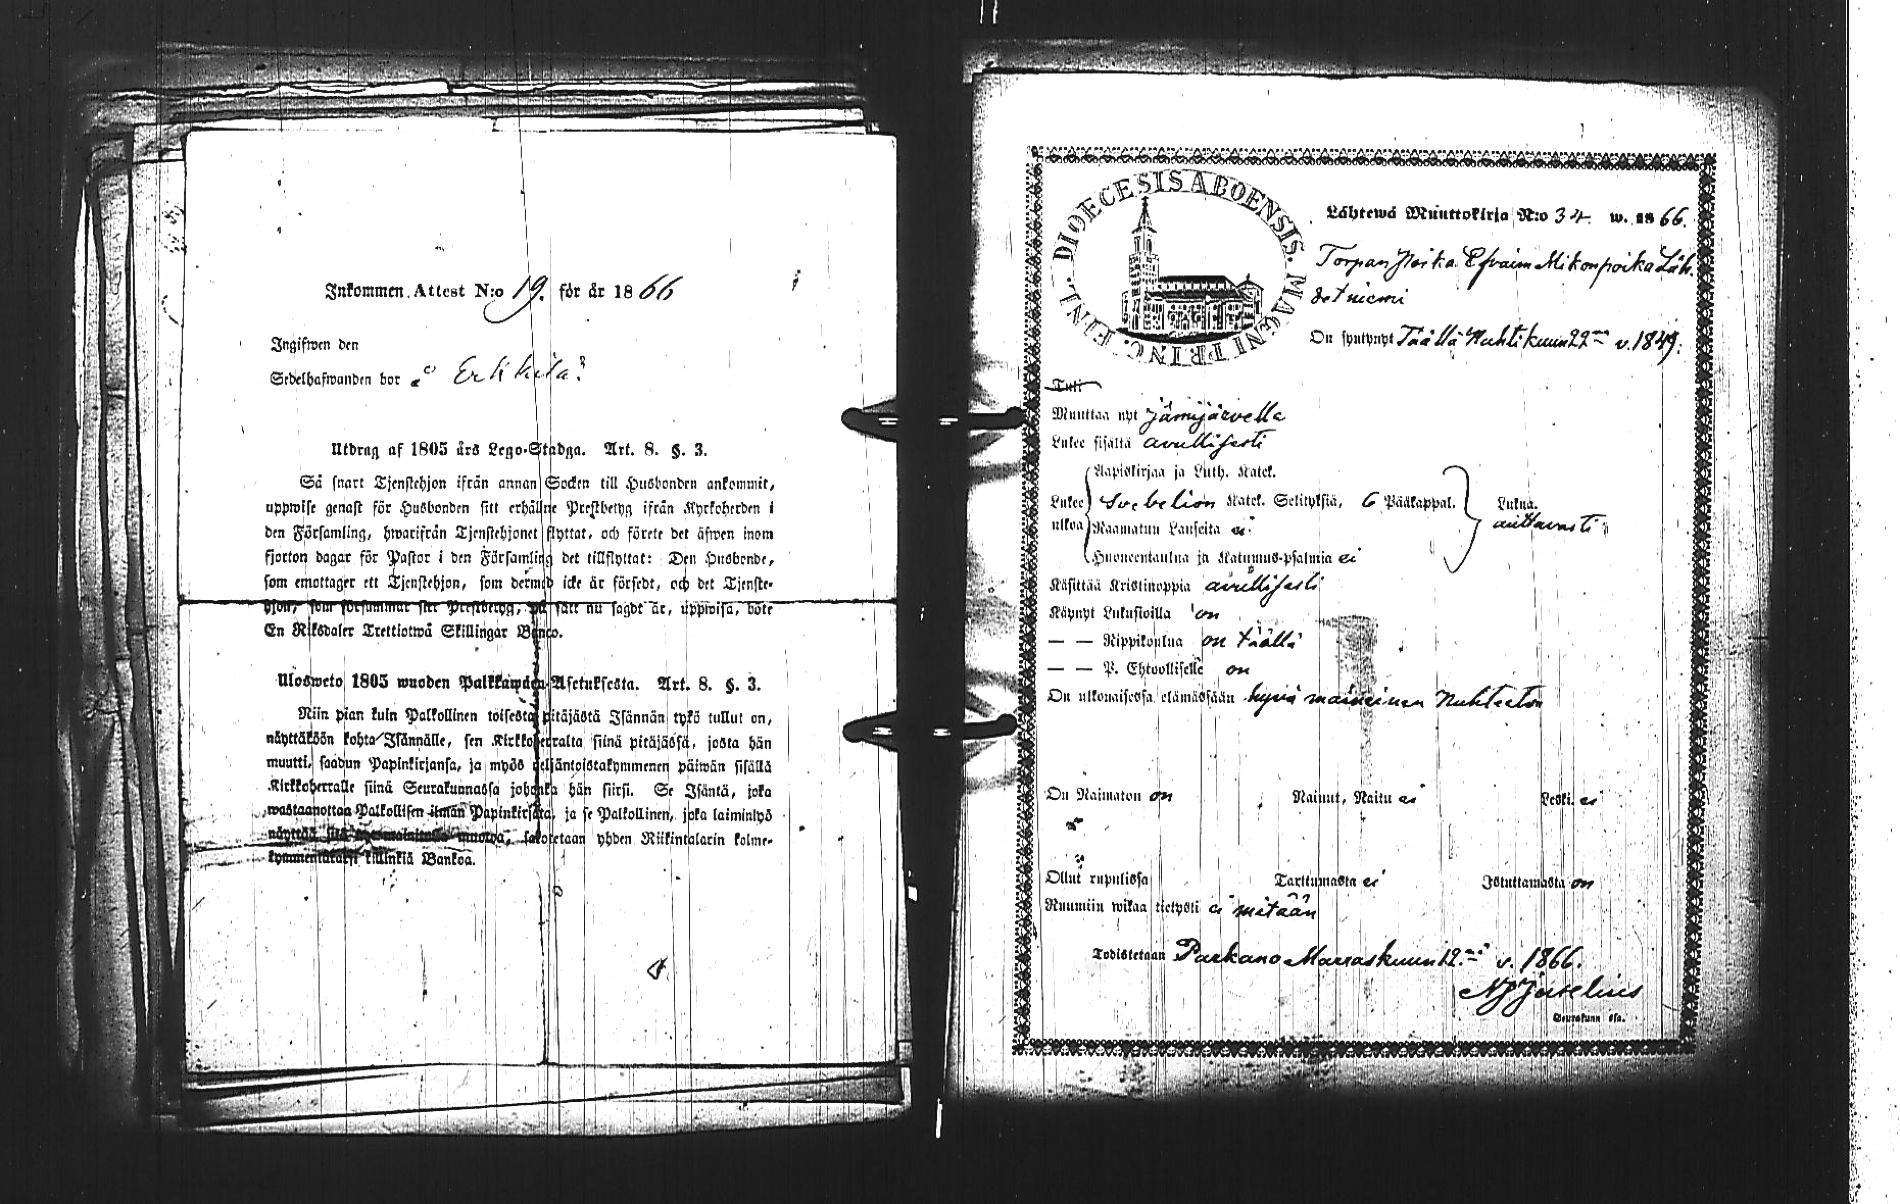 Inkommen Attest N:o 19. för år 1866
Ingifwen den
Sedelhafwanden bor å Erkkilä
Utdrag af 1805 års Lego-Stadga. Art. 8. §. 3.
Så snart Tjenstehjon ifrån annan Socken till Husbonden ankommit,
uppwise genast för Husbonden sitt erhållne Prestbetyg ifrån Kyrkoherden i
den Församling, hwarifrån Tjenstehjonet flyttat, och förete det äfwen inom
fjorton dagar för Pastor i den Församling det tillflyttat: Den Husbonde,
som emottager ett Tjenstehjon, som dermed icke är försedt, och det Tjenste-
hjon, som försummar sitt Prestbetyg, på sätt nu sagdt är, uppwisa, böte
En Riksdaler Trettiotwå Skillingar Banco.
Ulosweto 1805 wuoden Palkkawäen-Asetuksesta. Art. 8. §. 3.
Niin pian kuin Palkollinen toisesta pitäjästä Isännän tykö tullut on,
näyttäköön kohta Isännälle, sen Kirkkoherralta siinä pitäjässä, josta hän
muutti, saadun Papinkirjansa, ja myös neljäntoistakymmenen päiwän sisällä
Kirkkoherralle siinä Seurakunnassa johonka hän siirsi. Se Isäntä, joka
wastaanottaa Palkollisen ilman Papinkirjata, ja se Palkollinen, joka laiminlyö
näyttää sitä muotoa, sakotetaan yhden Riikintalarin kolme-
kymmentäkaksi killinkiä Bankoa.
DIOECESIS ABOENSIS. MAGNI PRINC. FINL.
Lähtewä Muuttokirja N:o 34. w. 1866.
Torpan Poika Efraim Mikonpoika Läh-
detniemi
On syntynyt Täällä Huhtikuun 22 v. 1849.
Tuli
Muuttaa nyt Jämijärvelle
Lukee sisältä avullisesti
Aapiskirjaa ja Luth. Katek.
Lukee ulkoa Svebelion Katek. Selityksiä, 6 Pääkappal. Lukua. auttavasti
Raamatun Lauseita ei
Huoneentaulua ja Katumus-psalmia ei
Käsittää Kristinoppia avullisesti
Käynyt Lukusioilla on
— — Rippikoulua on täällä
— — P. Ehtoollisella on
On ulkonaisessa elämässään hyvä maineinen Nuhteeton
On Naimaton on Nainut, Naitu ei Leski ei
Ollut rupulissa Tarttumasta ei Istuttamasta on
Ruumiin wikaa tietysti ei mitään
Todistetaan Parkano Marraskuun 12 v. 1866.
Seurakunn.